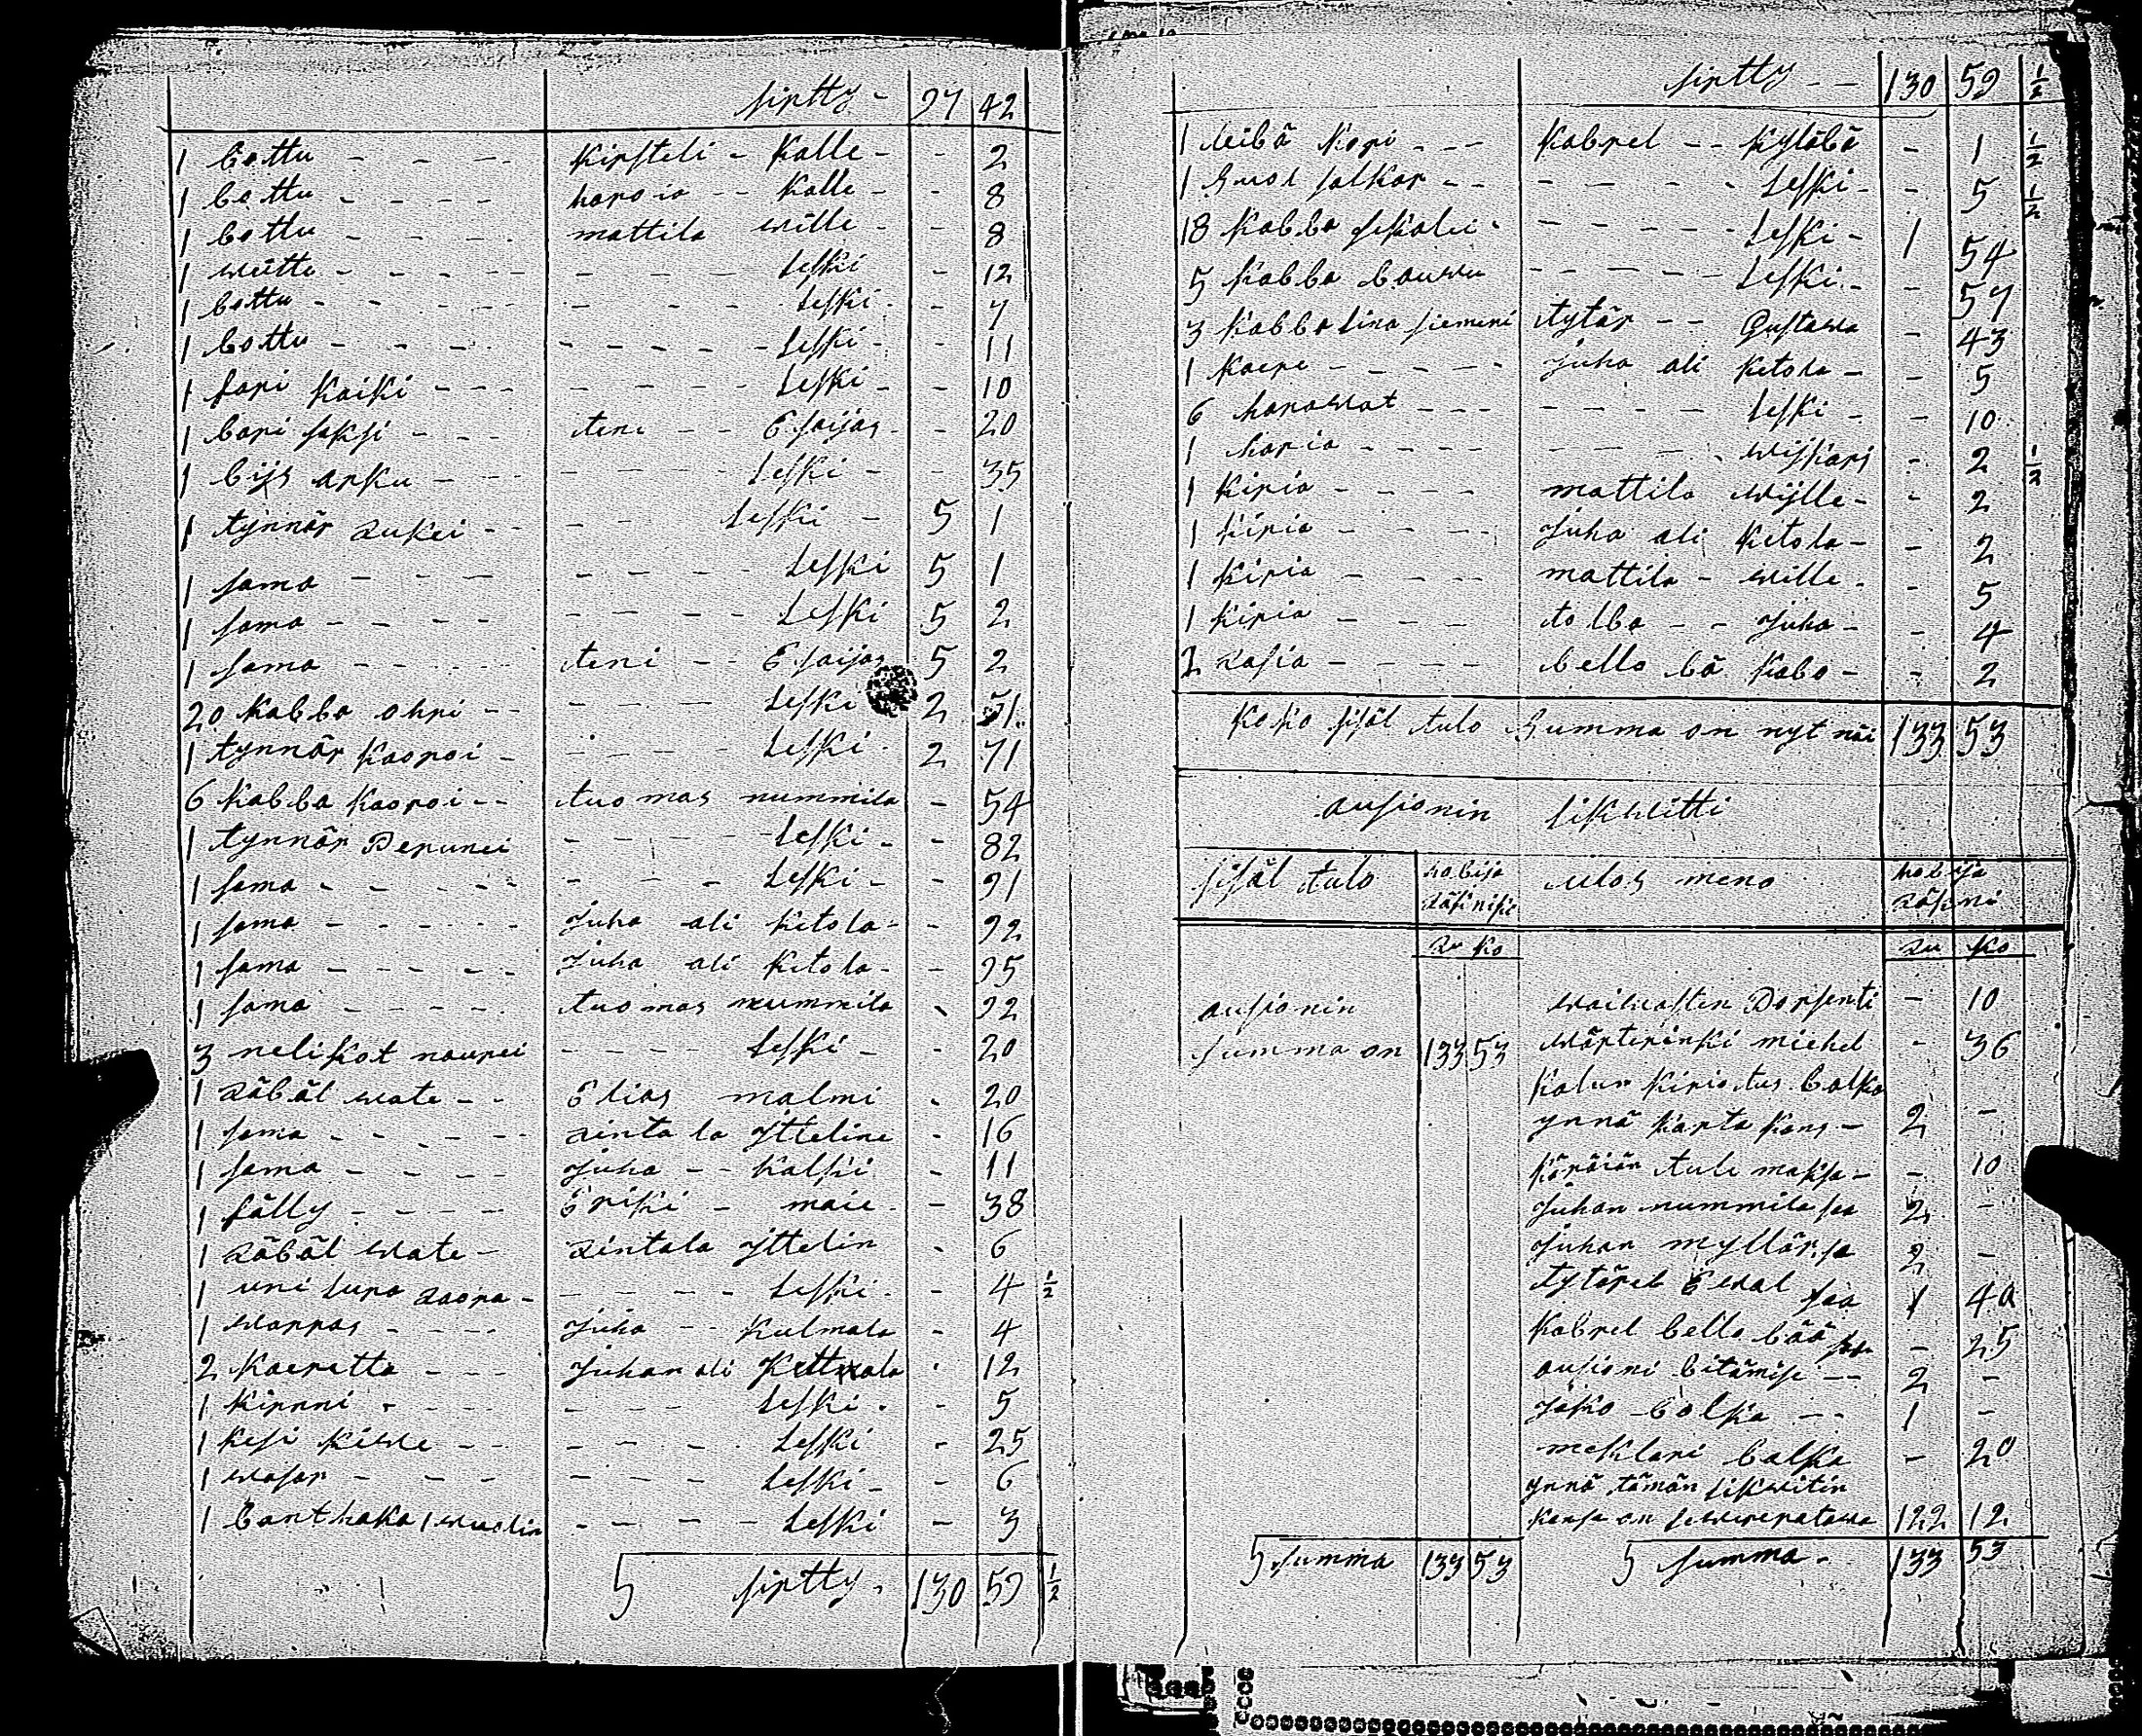 sirtty - 97 42
1 bottu - - - - Kirsteli - Kalle - - 2
1 bottu - - - - haroia - - Kalle - - 8
1 bottu - - - - mattila wille - - 8
1 weitti - - - - - - - leski - 12
1 bottu - - - - - - - leski - - 7
1 bottu - - - - - - - - leski - - 11
1 sari kaiki - - - - - - - leski - - 10
1 bari saksi - - - teni - - Esaijas - - 20
1 bijs arku - - - - - - leski - - 35
1 tynnär Rukei - - - - leski - 5 1
1 sama - - - - - - - leski 5 1
1 sama - - - - - - - - leski 5 2
1 sama - - - - - teni - - Esaijas 5 2
20 kabba ohri - - - - - - leski 2 51
1 tynnär kaoroi - - - - - leski - 2 71
6 kabba kaoroi - - tuomas nummila - 54
1 tynnär Perunei - - - - leski - - 82
1 sama - - - - - - - - leski - - 91
1 sama - - - - - Juha ali ketola - - 92
1 sama - - - - - Juha ali ketola - - 95
1 sama - - - - - tuomas nummila - 92
3 nelikot naurei - - - - leski - - 20
1 Räbäl wate - - Elias malmi - 20
1 sama - - - - - Rintala Ytteline - 16
1 sama - - - - Juha - - kalki - 11
1 sälly - - - - Eriki - maie - - 38
1 Räbäl wate - Rintala Yttelin - 6
1 uni lura Raora - - - - - leski - - 4 1/2
1 warras - - - - Juha - - kulmala - 4
2 kaeretta - - - Juhan ali Kettoala - 12
1 kirnni - - - - - - - leski - - 5
1 kesi kiwe - - - - - - leski - 25
1 wasar - - - - - - - leski - - 6
1 bant haka 1 wuolin - - - - - leski - 3
5 sirtty - 130 59 1/2
sirtty - - 130 59 1/2
1 leibä kori - - - kabrel - - kyläbä - 1 1/2
1 Suol salkar - - - - - - - leski - - 5 1/2
18 kabba sekalei - - - - - - leski - 1 54
5 kabba bauwu - - - - - leski - - 57
3 kabba lina siemeni tytär - - Gustawa - 43
1 kaere - - - - - Juha ali ketola - - 5
6 harawat - - - - - - - leski - - 10
1 haria - - - - - - - - wiskari - 2 1/2
1 kiria - - - - mattila wijlle - - 2
1 kiria - - - - Juha ali ketola - - 2
1 kiria - - - - mattila - wille - - 5
1 kiria - - - - tolba - - Juha - - 4
1 Rasia - - - - bello bä kabo - - 2
koko sisäl tulo Summa on nyt näi 133 53
ausionin likwitti
sisäl tulo hobija Räknike ulos meno hobija Räkni
Ru ko Ru ko
ausionin waiwasten Porsenti - 10
summa on 133 53 wärterinki michel - 36
kalun kirjotus balka
ynnä karta kans - 2 -
käräiän tuli maksa - - 10
Juhan nummila saa 2 -
Juhan myllär sa 2 -
tytärel Ewal saa 1 40
kabrel bello bää saa - 25
ausioni bitämise - - 2 -
Jako - balka - - 1 -
meklari balka - 20
ynnä tämän likwitin
kansa on sewirenatawa 122 12
5 summa 133 53 5 summa - 133 53